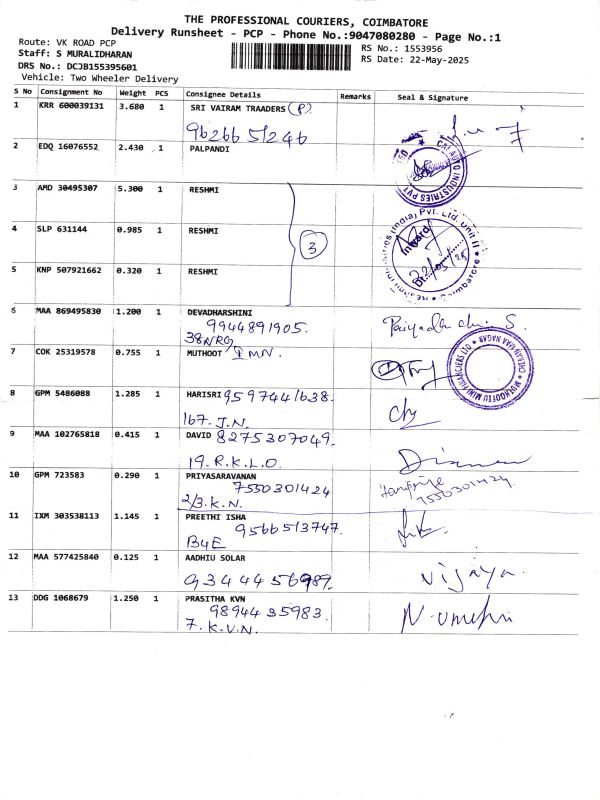 THE PROFESSIONAL COURIERS, COIMBATORE
Delivery Runsheet - PCP - Phone No.:9047080280 - Page No.:1
Route: VK ROAD PCP
RS No.: 1553956
Staff: S MURALIDHARAN
RS Date: 22-May-2025
DRS No.: DCJB155395601
Vehicle: Two Wheeler Delivery
S No Consignment No Weight PCS Consignee Details Remarks Seal & Signature
1 KRR 600039131 3.680 1 SRI VAIRAM TRAADERS (P)
96266 51246
2 EDQ 16076552 2.430 1 PALPANDI
3 AMD 30495307 5.300 1 RESHMI
4 SLP 631144 0.985 1 RESHMI
3
5 KNP 507921662 0.320 1 RESHMI
6 MAA 869495830 1.200 1 DEVADHARSHINI
9944891905.
7 COK 25319578 0.755 1 MUTHOOT
8 GPM 5486088 1.285 1 HARISRI 9597441638.
167. J.N.
9 MAA 102765818 0.415 1 DAVID 8275307049.
19. R.K.L.O.
10 GPM 723583 0.290 1 PRIYASARAVANAN
7550301424 7550301424.
2/3. K.N.
11 IXM 303538113 1.145 1 PREETHI ISHA
9566513747.
B4E
12 MAA 577425840 0.125 1 AADHIU SOLAR
9344456989. Vijaya.
13 DDG 1068679 1.250 1 PRASITHA KVN
9894435983.
7. K.V.N.